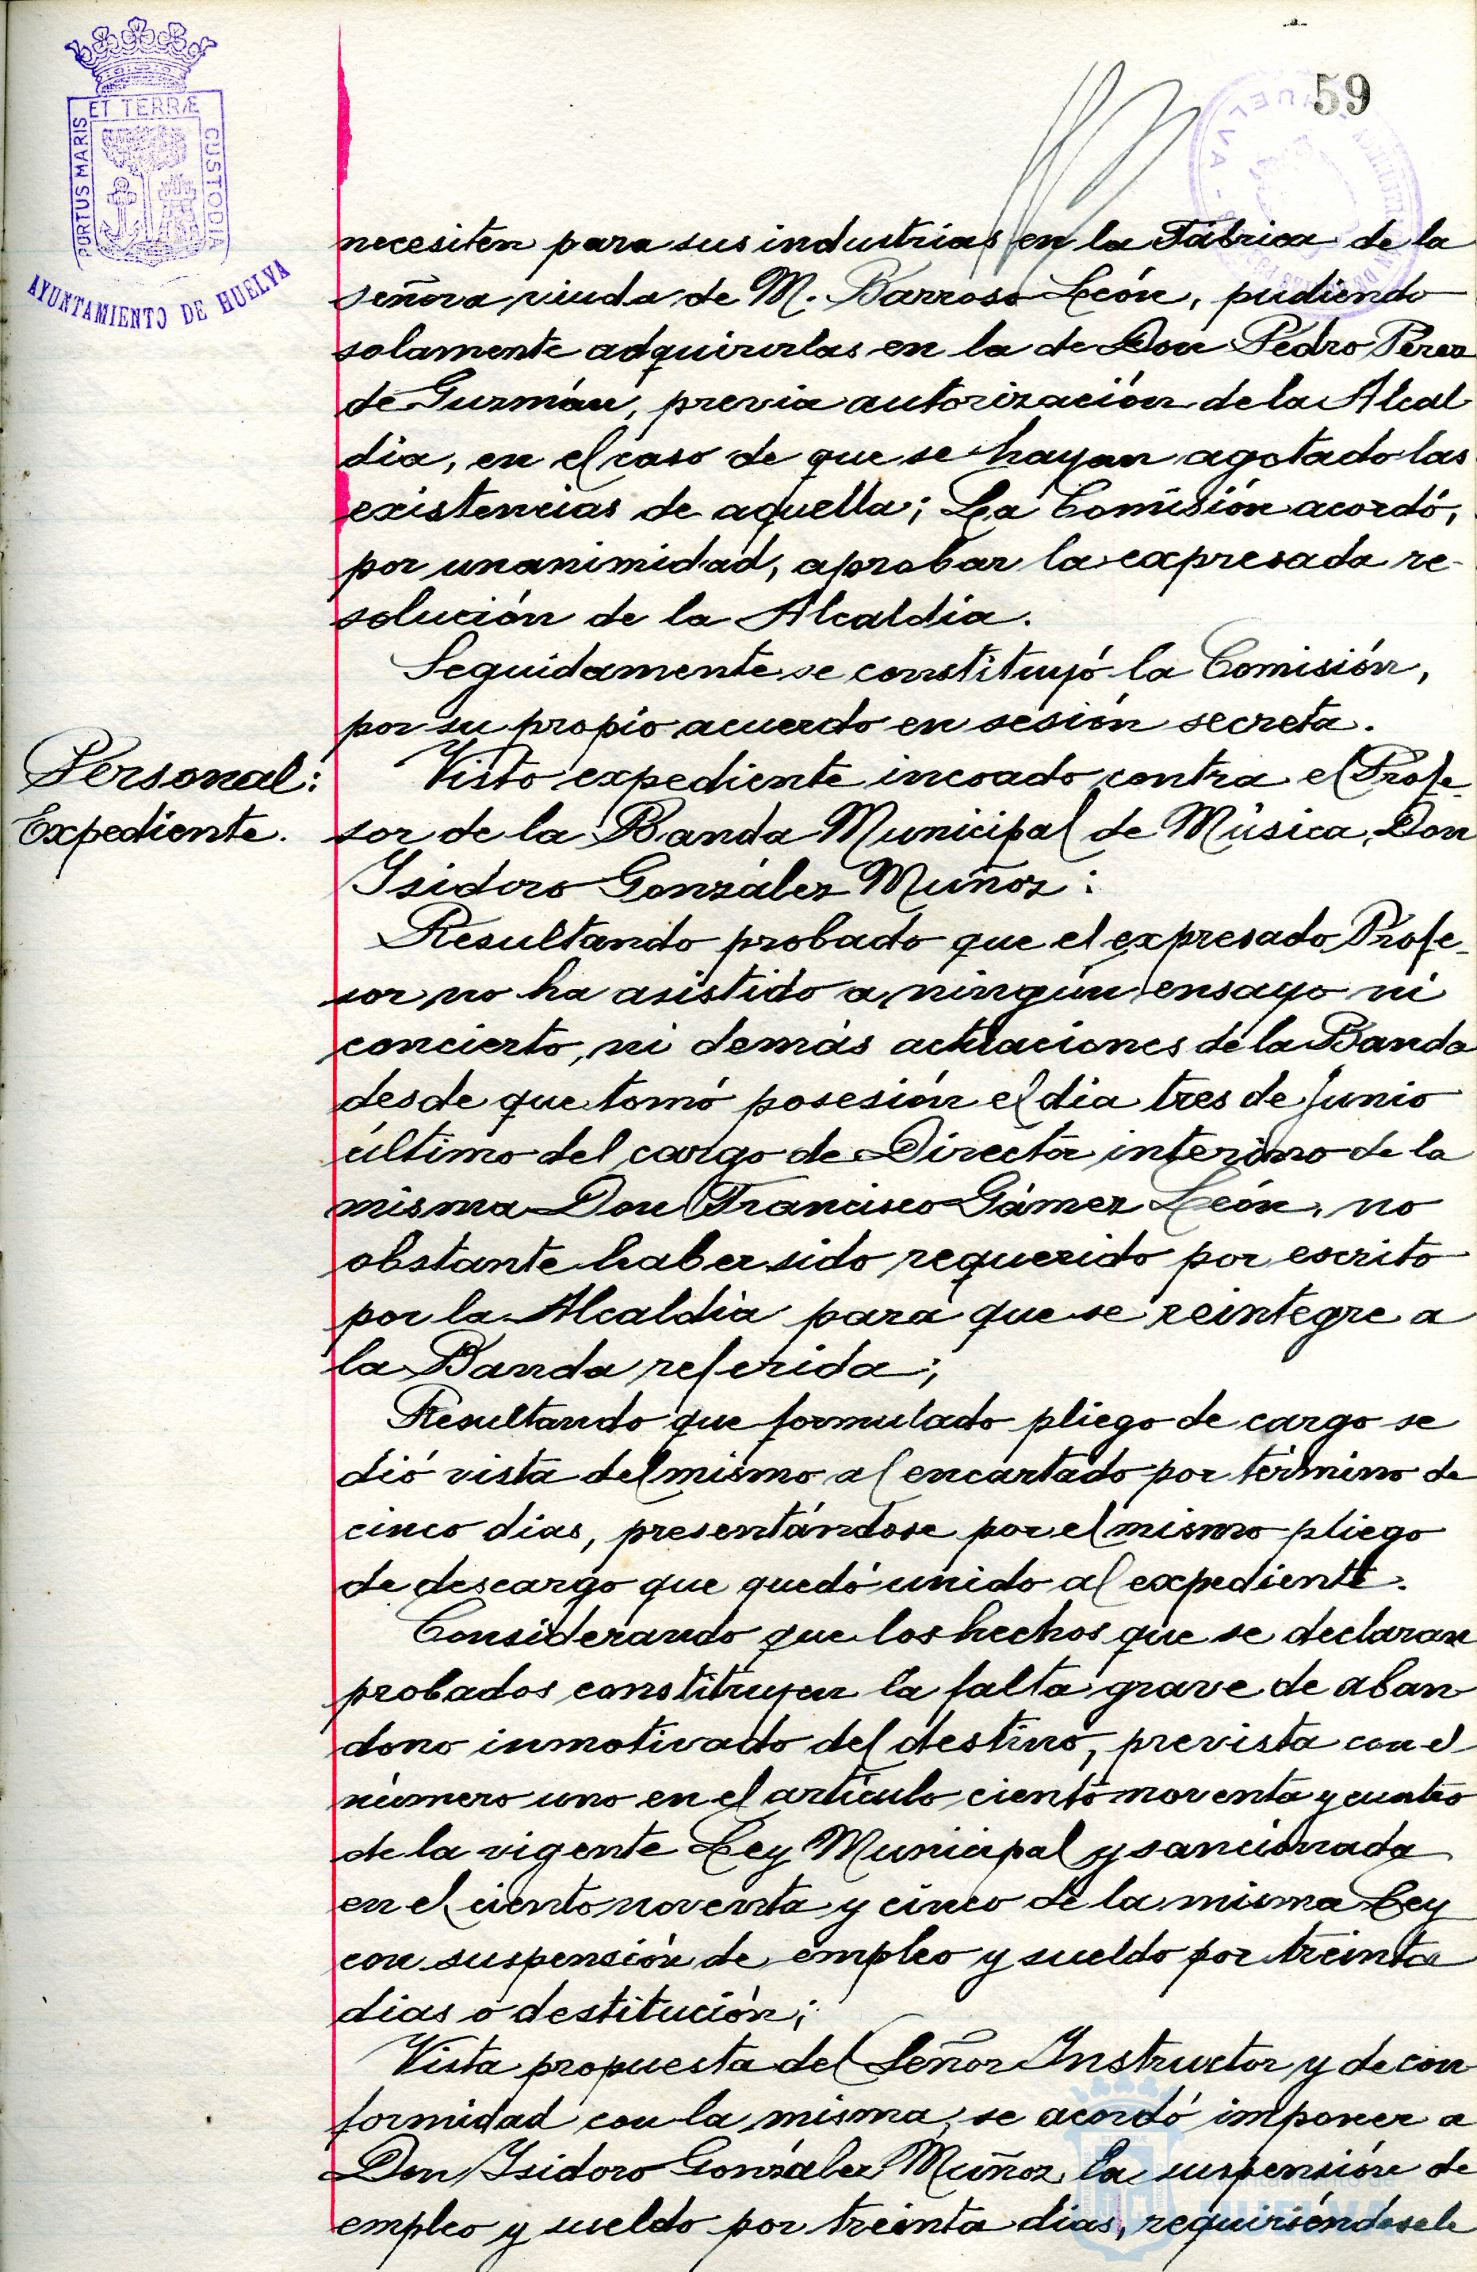 59
PORTUS MARIS ET TERRÆ CUSTODIA
AYUNTAMIENTO DE HUELVA
necesiten para sus industrias en la Fábrica de la
señora viuda de M. Barroso León, pudiendo
solamente adquirirlas en la de Don Pedro Pérez
de Guzmán, previa autorización de la Alcal
dia, en el caso de que se hayan agotado las
existencias de aquella; La Comisión acordó,
por unanimidad, aprobar la expresada re-
solución de la Alcaldia.
Seguidamente se constituyó la Comisión,
por su propio acuerdo en sesión secreta.
Personal:
Expediente.
Visto expediente incoado contra el Profe-
sor de la Banda Municipal de Música, Don
Isidoro González Muñoz:
Resultando probado que el expresado Profe-
sor no ha asistido a ningún ensayo ni
concierto, ni demás actuaciones de la Banda
desde que tomó posesión el dia tres de Junio
último del cargo de Director interino de la
misma Don Francisco Gámez León, no
obstante haber sido requerido por escrito
por la Alcaldia para que se reintegre a
la Banda referida;
Resultando que formulado pliego de cargo se
dió vista del mismo al encartado por término de
cinco dias, presentándose por el mismo pliego
de descargo que quedó unido al expediente.
Considerando que los hechos que se declaran
probados constituyen la falta grave de aban
dono inmotivado del destino, prevista con el
número uno en el artículo ciento noventa y cuatro
de la vigente Ley Municipal y sancionada
en el ciento noventa y cinco de la misma Ley
con suspensión de empleo y sueldo por treinta
dias o destitución;
Vista propuesta del Señor Instructor y de con
formidad con la misma, se acordó imponer a
Don Isidoro González Muñoz la suspensión de
empleo y sueldo por treinta dias, requiriéndosele
Ayuntamiento de
HUELVA